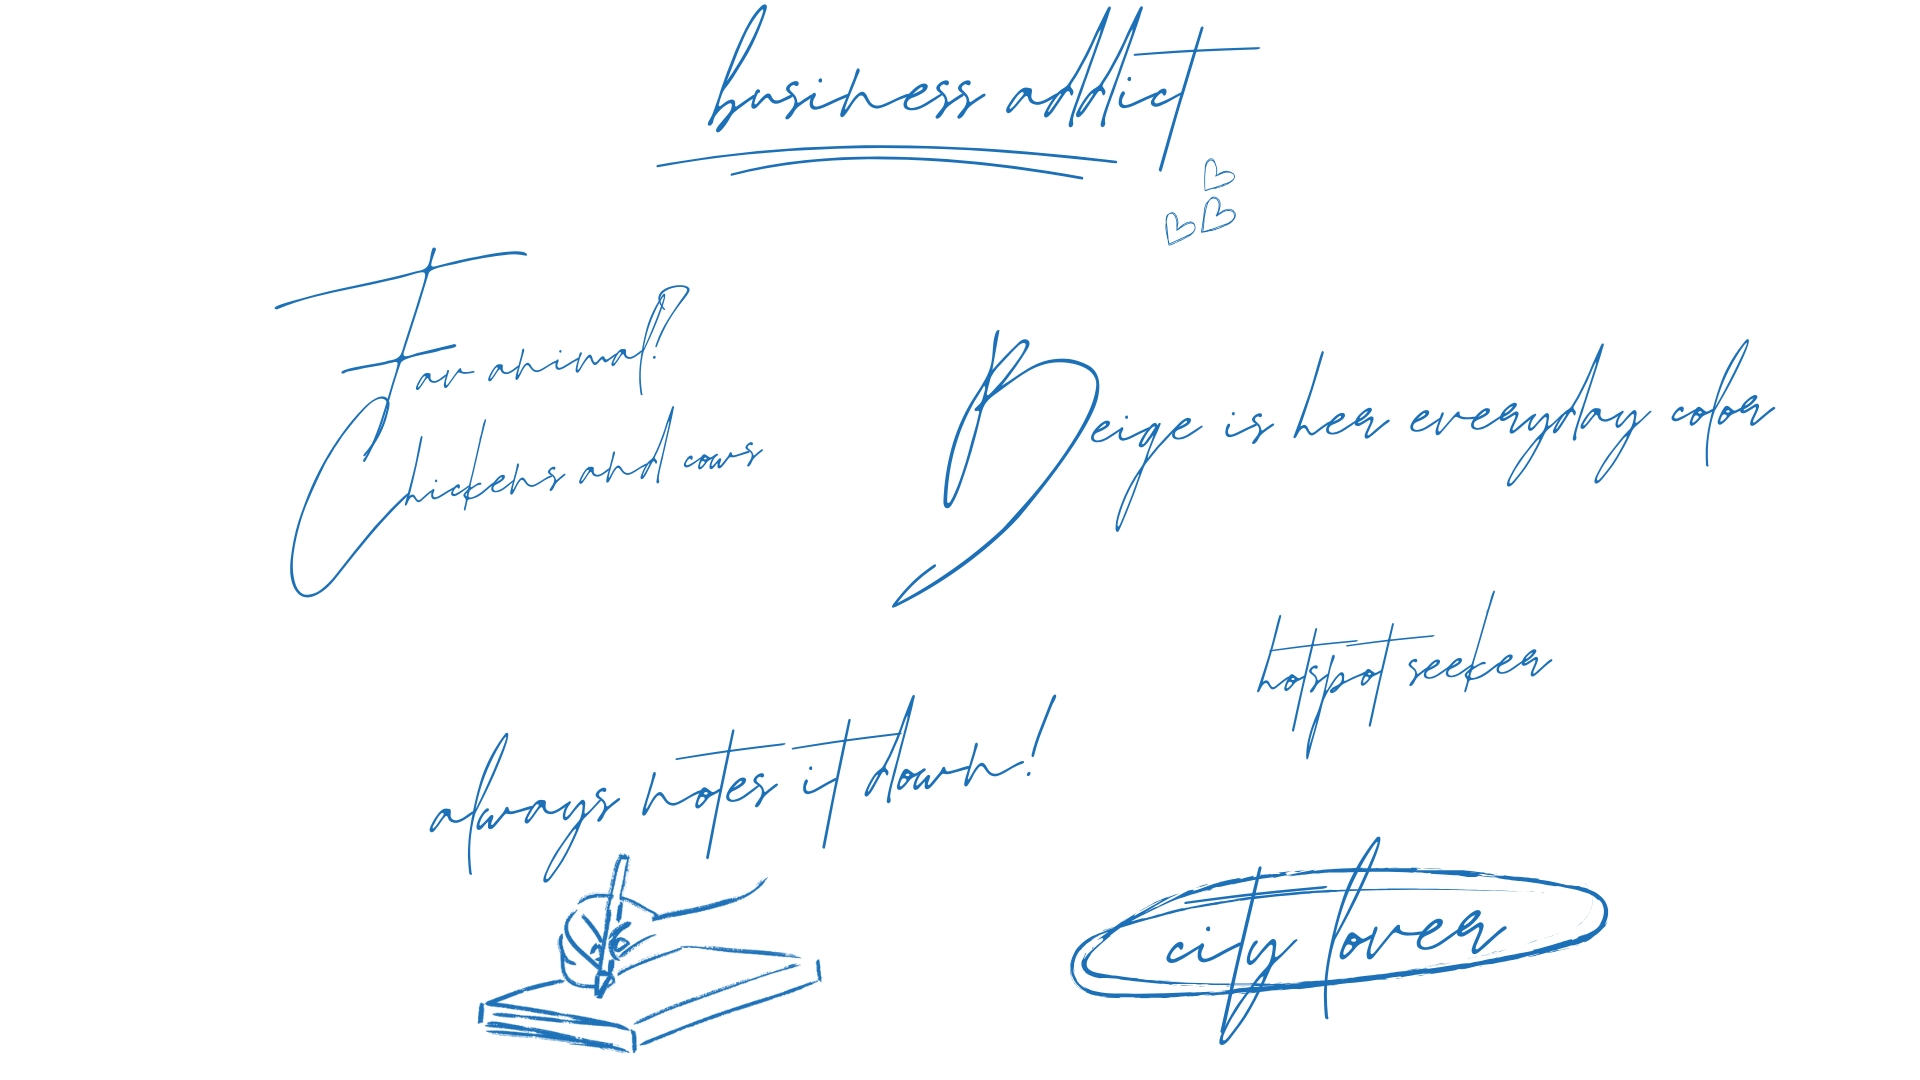 business addict
Fav animal?
Chickens and cows
Beige is her everyday color
hotspot seeker
always notes it down!
city lover